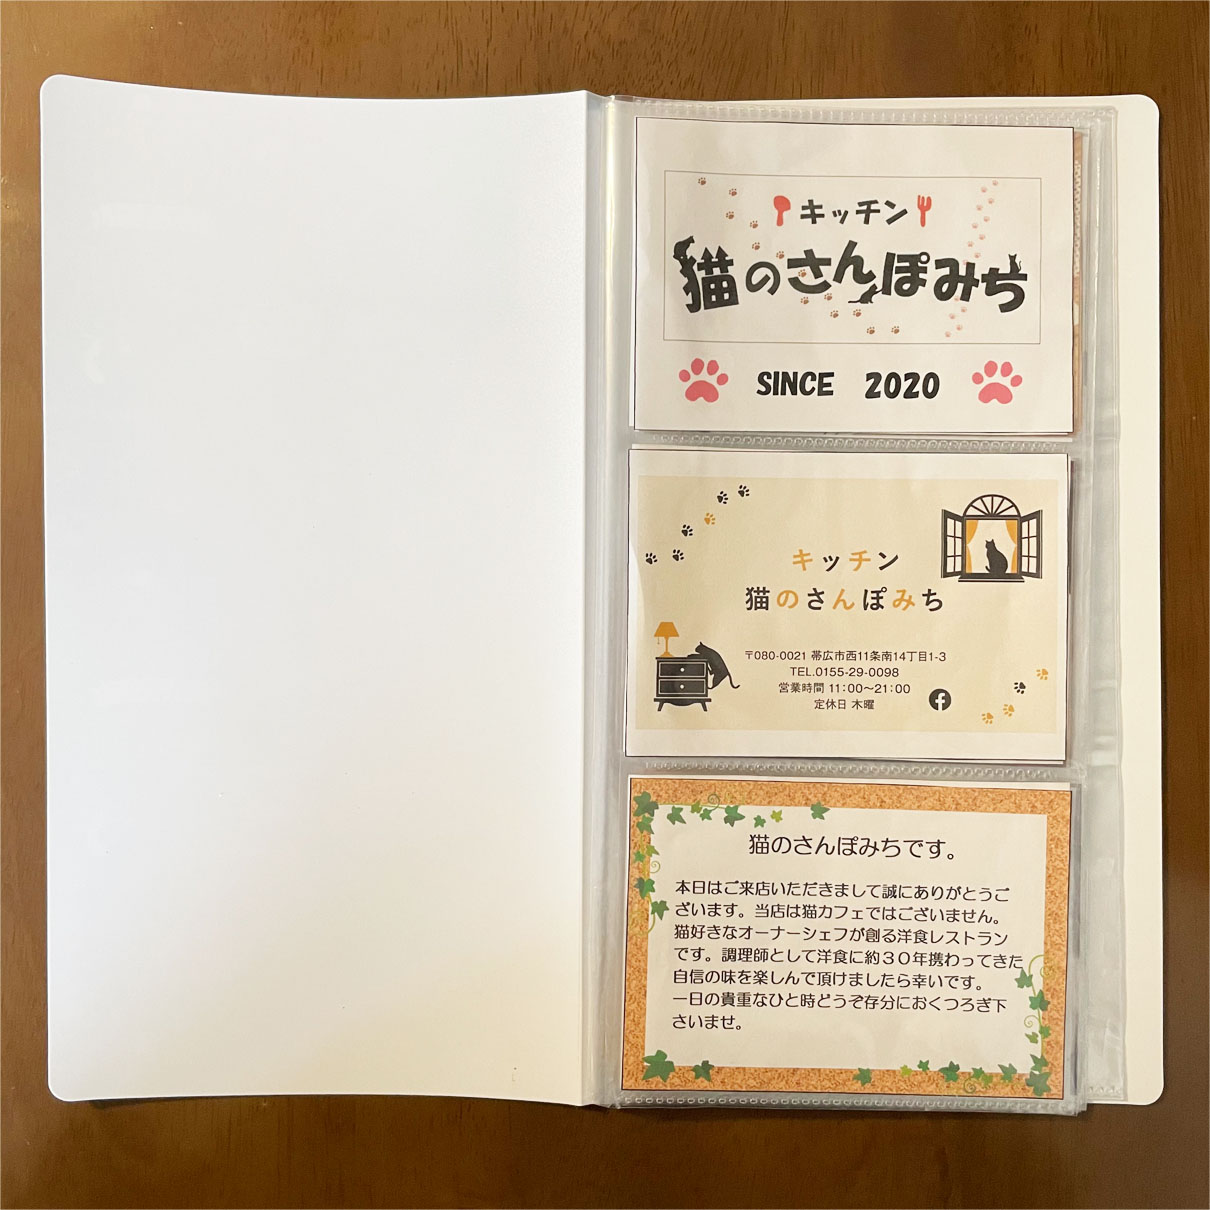 キッチン
猫のさんぽみち
SINCE 2020
キッチン
猫のさんぽみち
〒080-0021 帯広市西11条南14丁目1-3
TEL.0155-29-0098
営業時間 11:00〜21:00
定休日 木曜
猫のさんぽみちです。
本日はご来店いただきまして誠にありがとうご
ざいます。当店は猫カフェではございません。
猫好きなオーナーシェフが創る洋食レストラン
です。調理師として洋食に約３０年携わってきた
自信の味を楽しんで頂けましたら幸いです。
一日の貴重なひと時どうぞ存分におくつろぎ下
さいませ。